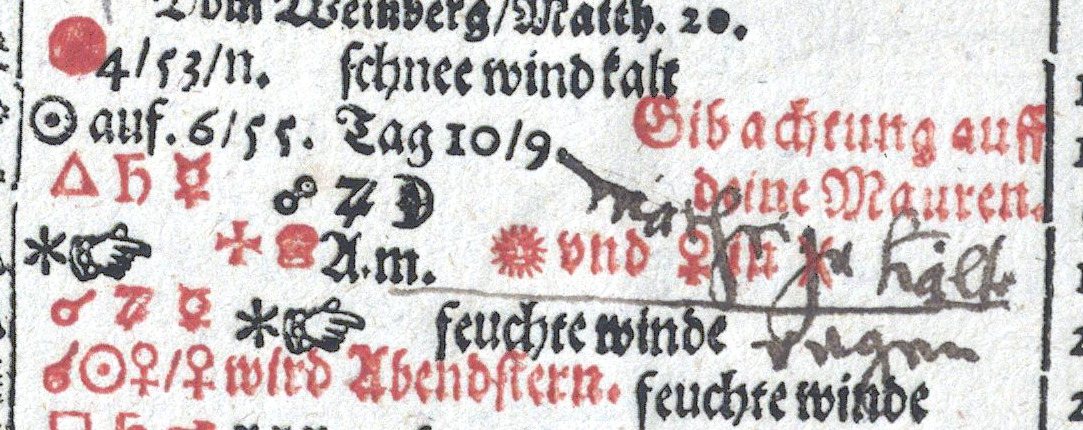 Vom Weinberg/Matth. 20.
4/53/n. schnee wind kalt
☉ auf. 6/55. Tag 10/9. Gib achtung auff
△ ♄ ☿ ☍ ♃ ☽ deine Mauren.
A.m. ☀ vnd ♀ in ♓ kält
☌ ♃ ☿ feuchte winde regen
☌☉♀/♀ wird Abendstern. feuchte winde